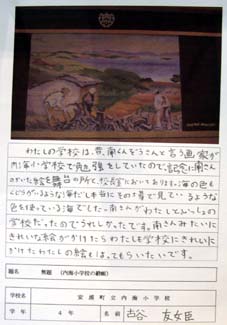 わたしの学校は、昔、南くんぞうさんと言う画家が
内海小学校で勉強をしていたので、記念に南さん
のかいた絵を舞台の所と、校長室においてあります。海の色も
本当にその場で見ているような
色を使っている海でした。南さんがわたしと
学校だったのでうれしかったです。南さんみたいに
きれいな絵がかけたらわたしも学校にきれいに
かけたわたしの絵もはってもらいたいです。
題名 無題 (内海小学校の緞帳)
学校名 安浦町立内海小学校
学年 4年 氏名 古谷 友女臣